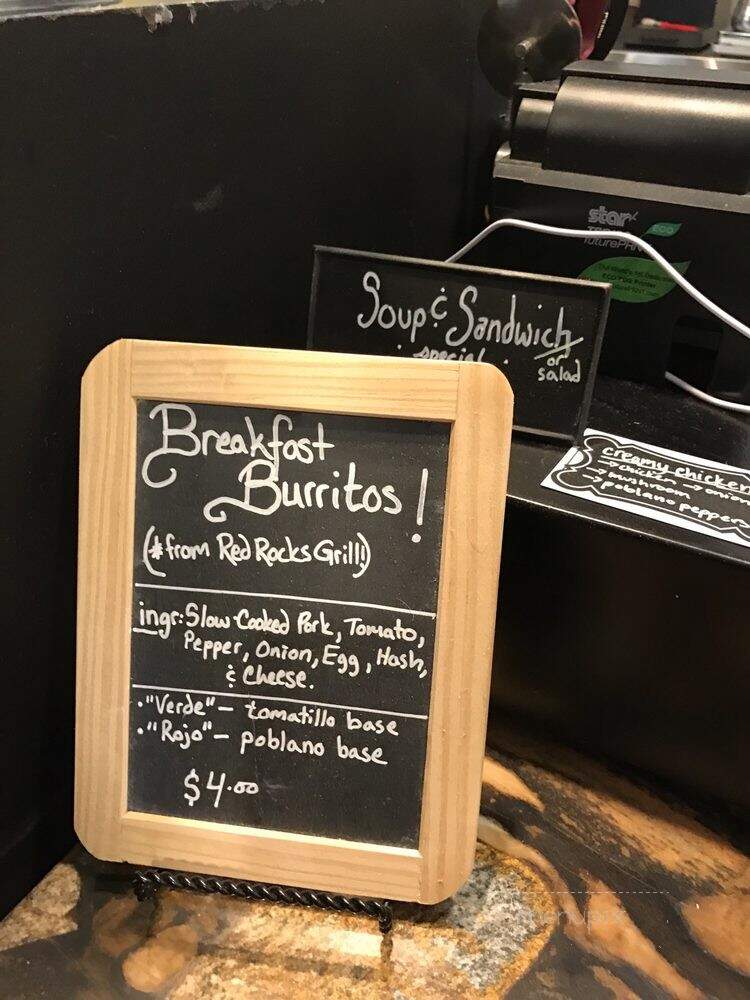 star
ECO
futurePRNT
Soup & Sandwich
or
special
salad
Breakfast
Burritos!
(*from Red Rocks Grill!)
ingr: Slow-Cooked Pork, Tomato,
Pepper, Onion, Egg, Hash,
& Cheese.
• "Verde" - tomatillo base
• "Rojo" - poblano base
$4.00
creamy chicken
→ chicken → onion
→ mushroom
→ poblano peppers